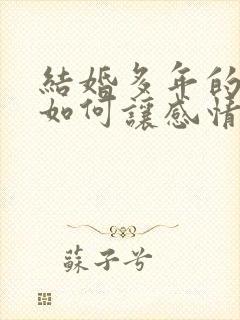 結婚多年的
如何讓感情
蘇子兮